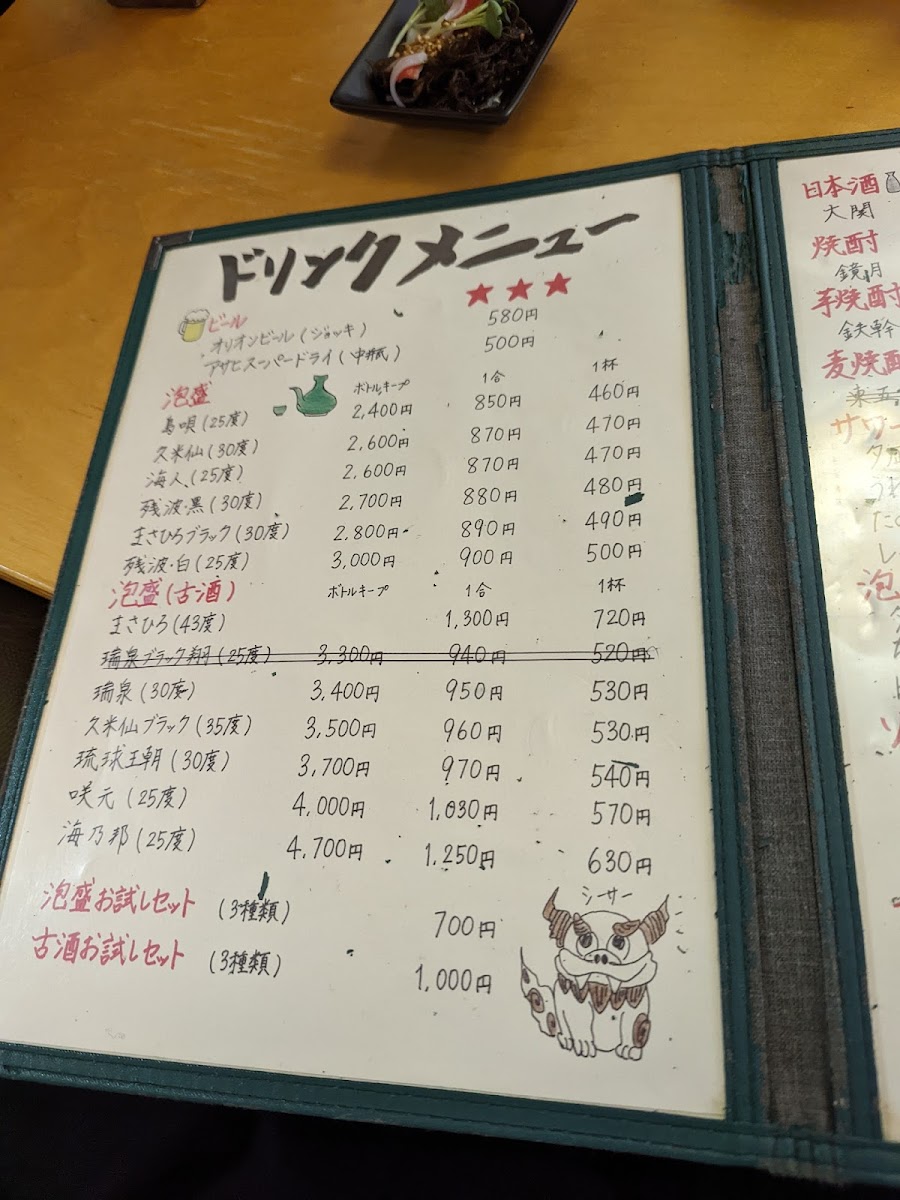 ドリンクメニュー
★★★
ビール
オリオンビール(ジョッキ) 580円
アサヒスーパードライ(中瓶) 500円
泡盛 ボトルキープ 1合 1杯
島唄(25度) 2,400円 850円 460円
久米仙(30度) 2,600円 870円 470円
海人(25度) 2,600円 870円 470円
残波・黒(30度) 2,700円 880円 480円
まさひろブラック(30度) 2,800円 890円 490円
残波・白(25度) 3,000円 900円 500円
泡盛(古酒) ボトルキープ 1合 1杯
まさひろ(43度) 1,300円 720円
瑞泉ブラック翔(25度) 3,300円 940円 520円
瑞泉(30度) 3,400円 950円 530円
久米仙ブラック(35度) 3,500円 960円 530円
琉球王朝(30度) 3,700円 970円 540円
咲元(25度) 4,000円 1,030円 570円
海乃邦(25度) 4,700円 1,250円 630円
泡盛お試しセット (3種類) 700円
古酒お試しセット (3種類) 1,000円
シーサー
日本酒
大関
焼酎
鏡月
芋焼酎
鉄幹
麦焼酎
サワー
泡